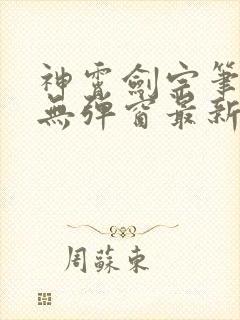 神霄劍宗筆
無彈窗最新
周蘇東